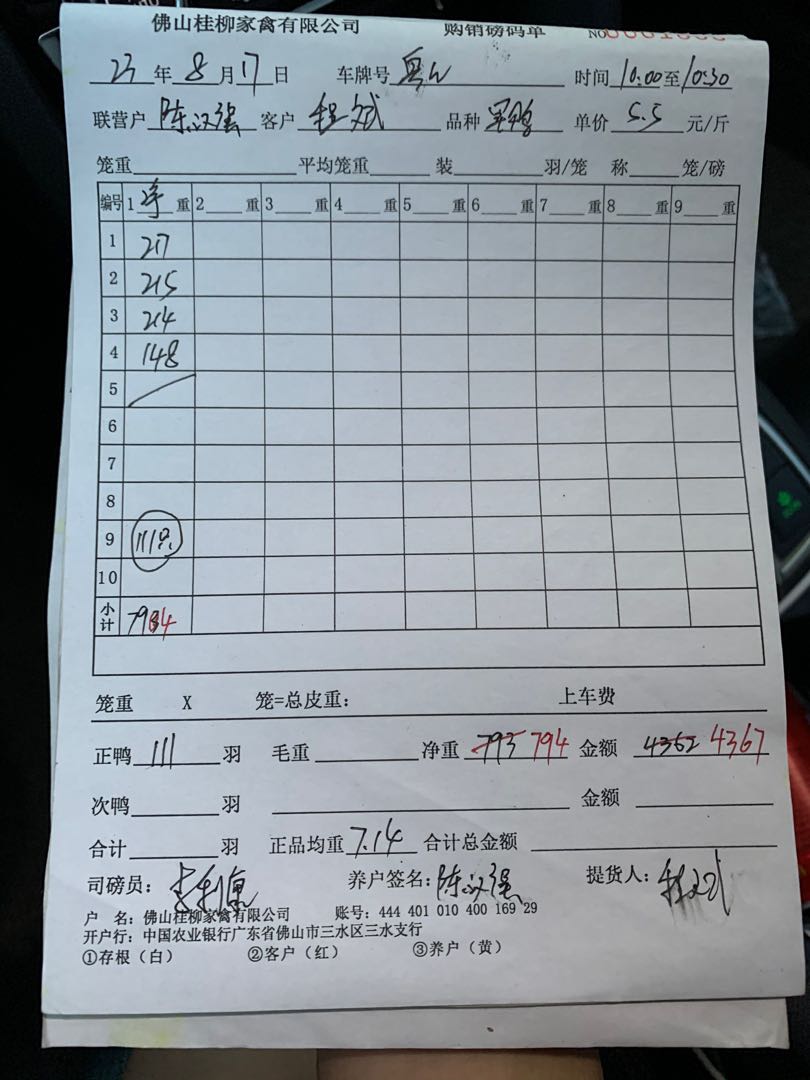 佛山桂柳家禽有限公司 购销磅码单 NO
23 年 8 月 17 日 车牌号 粤 时间 10:00 至 10:30
联营户 陈汉强 客户 程斌 品种 单价 5.5 元/斤
笼重 平均笼重 装 羽/笼 称 笼/磅
编号 1 净 重 2 重 3 重 4 重 5 重 6 重 7 重 8 重 9 重
1 217
2 215
3 214
4 148
5
6
7
8
9 111只
10
小计 794
笼重 X 笼=总皮重: 上车费
正鸭 111 羽 毛重 净重 793 794 金额 4362 4367
次鸭 羽 金额
合计 羽 正品均重 7.14 合计总金额
司磅员: 养户签名: 陈汉强 提货人: 程斌
户 名: 佛山桂柳家禽有限公司 账号: 444 401 010 400 169 29
开户行: 中国农业银行广东省佛山市三水区三水支行
①存根（白） ②客户（红） ③养户（黄）